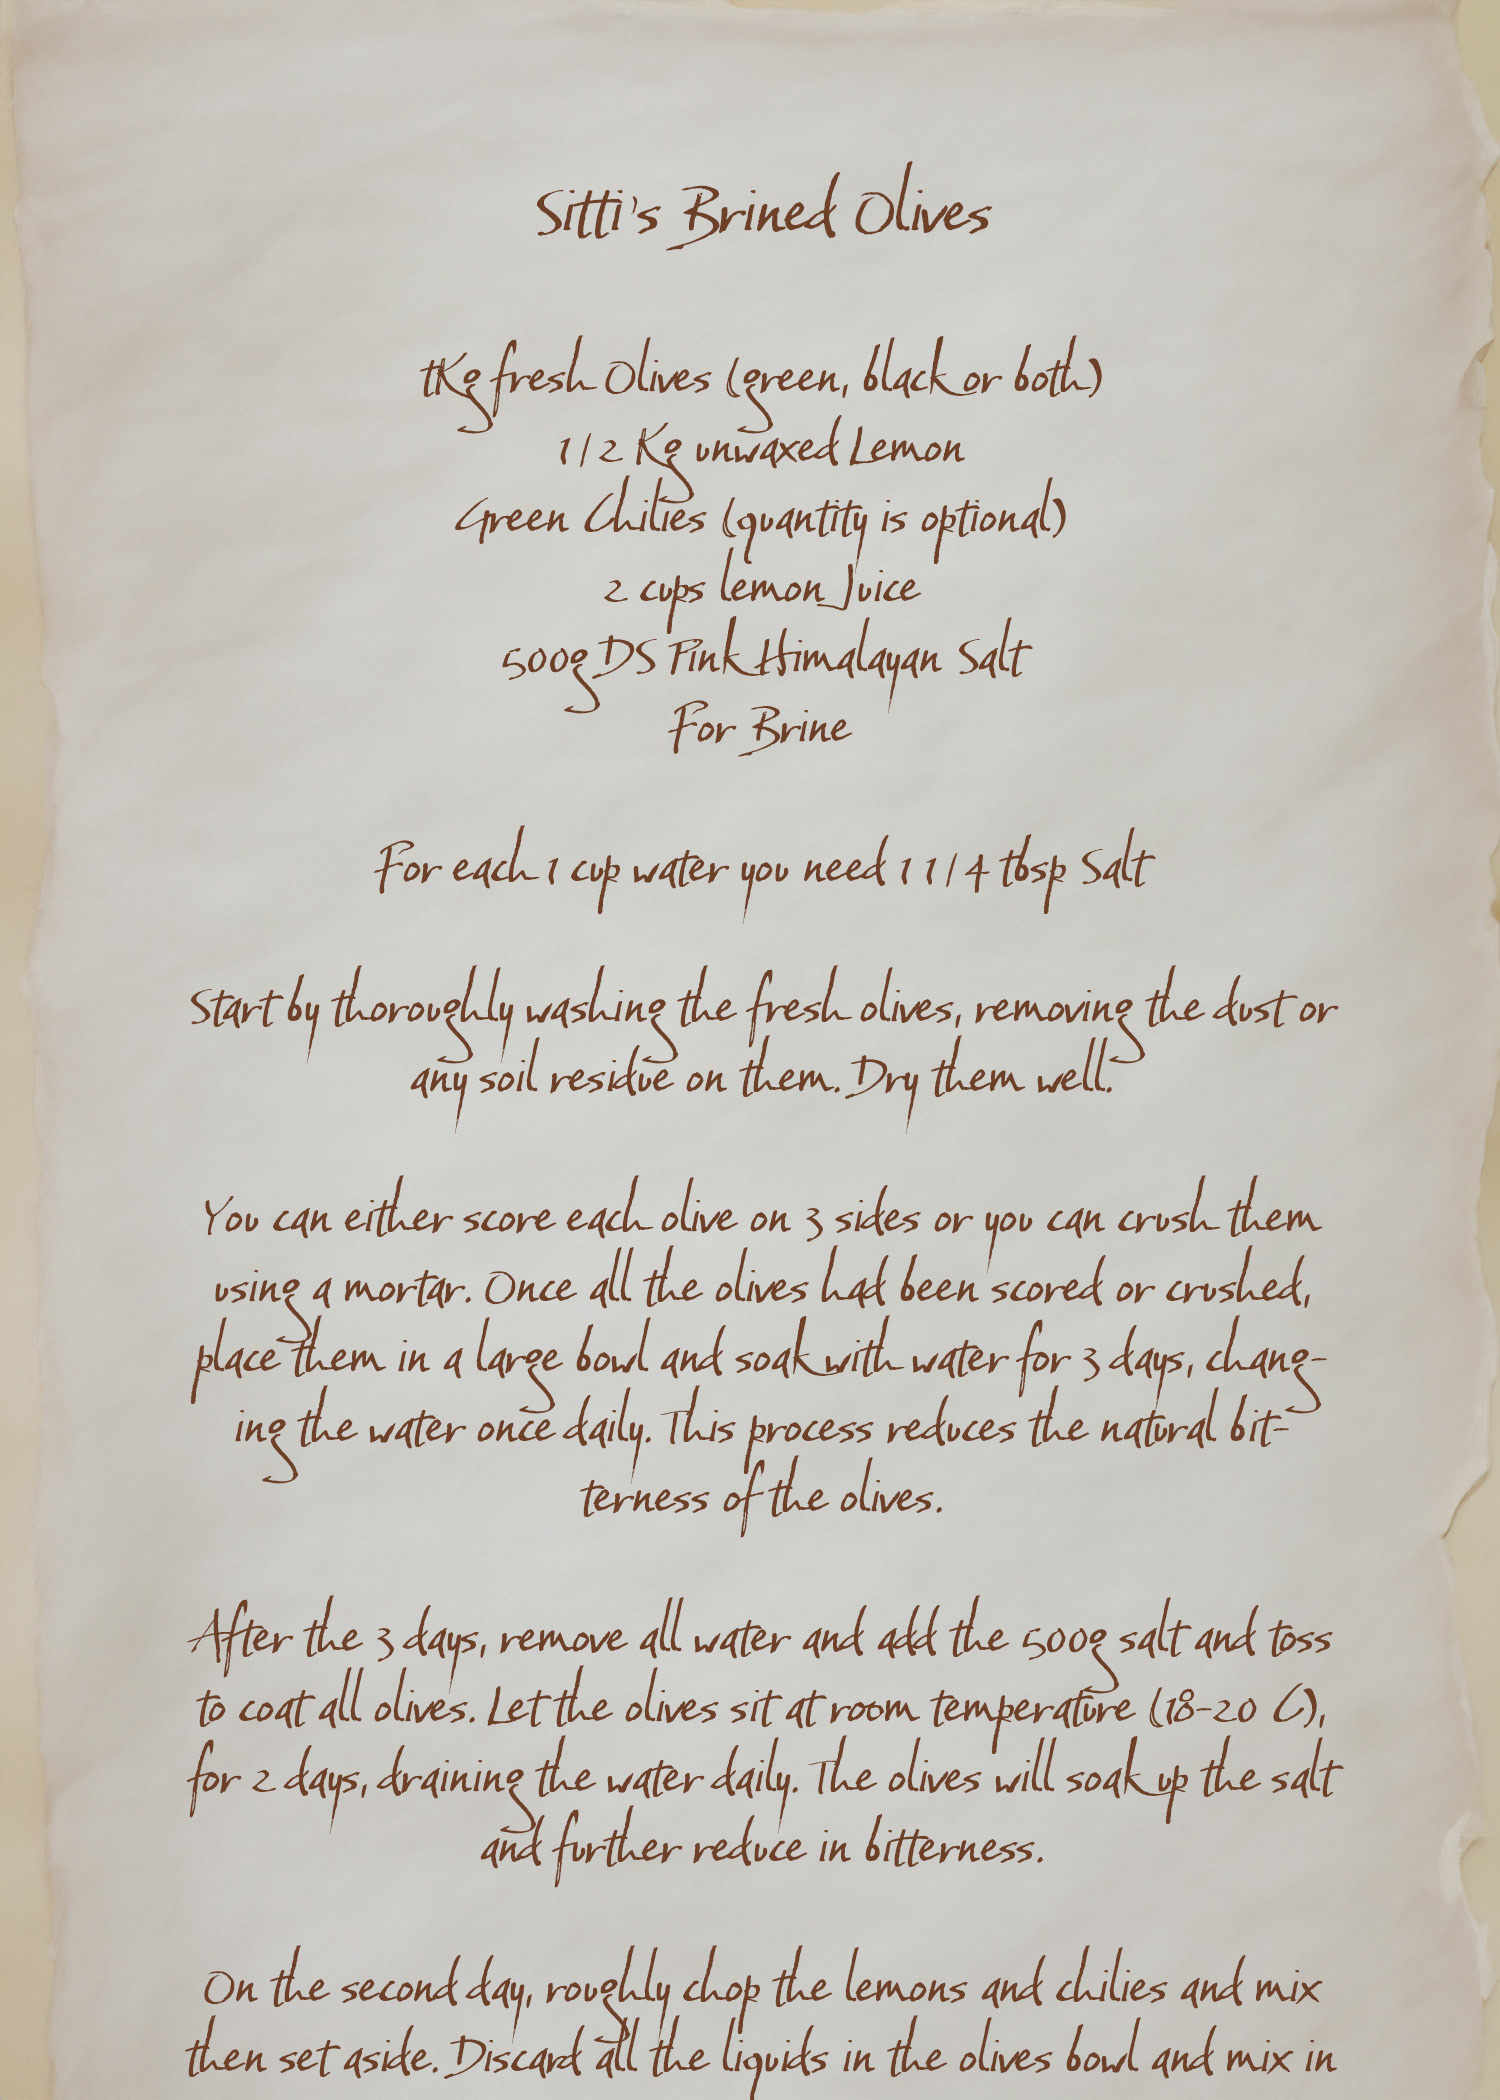 Sitti's Brined Olives
tKg fresh Olives (green, black or both)
1/2 Kg unwaxed Lemon
Green Chilies (quantity is optional)
2 cups lemon Juice
500g DS Pink Himalayan Salt
For Brine
For each 1 cup water you need 1 1/4 tbsp Salt
Start by thoroughly washing the fresh olives, removing the dust or
any soil residue on them. Dry them well.
You can either score each olive on 3 sides or you can crush them
using a mortar. Once all the olives had been scored or crushed,
place them in a large bowl and soak with water for 3 days, chang-
ing the water once daily. This process reduces the natural bit-
terness of the olives.
After the 3 days, remove all water and add the 500g salt and toss
to coat all olives. Let the olives sit at room temperature (18-20 C),
for 2 days, draining the water daily. The olives will soak up the salt
and further reduce in bitterness.
On the second day, roughly chop the lemons and chilies and mix
then set aside. Discard all the liquids in the olives bowl and mix in